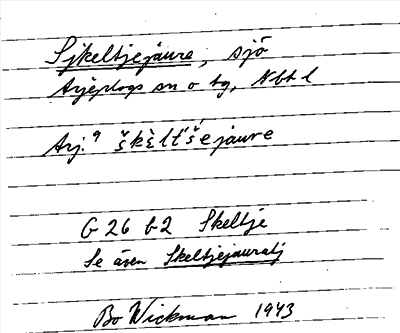 Sjkeltjejaure, sjö
Arjeplogs sn o tg, Nbt l
Arj. 9 škèlt́šejaure
G 26 b2 Skeltje
Se även Skeltjejauratj
Bo Wickman 1943